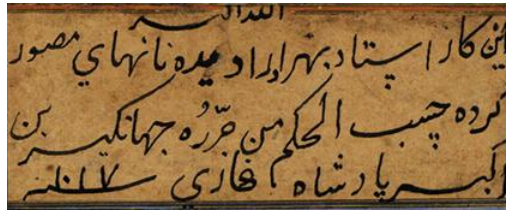 الله اکبر
این کار استاد بهزاد را دیده نانهای مصور
کرده حسب الحکم من حرّرُه جهانگیر بن
اکبر پادشاه غازی سنه ۱۰۱۷